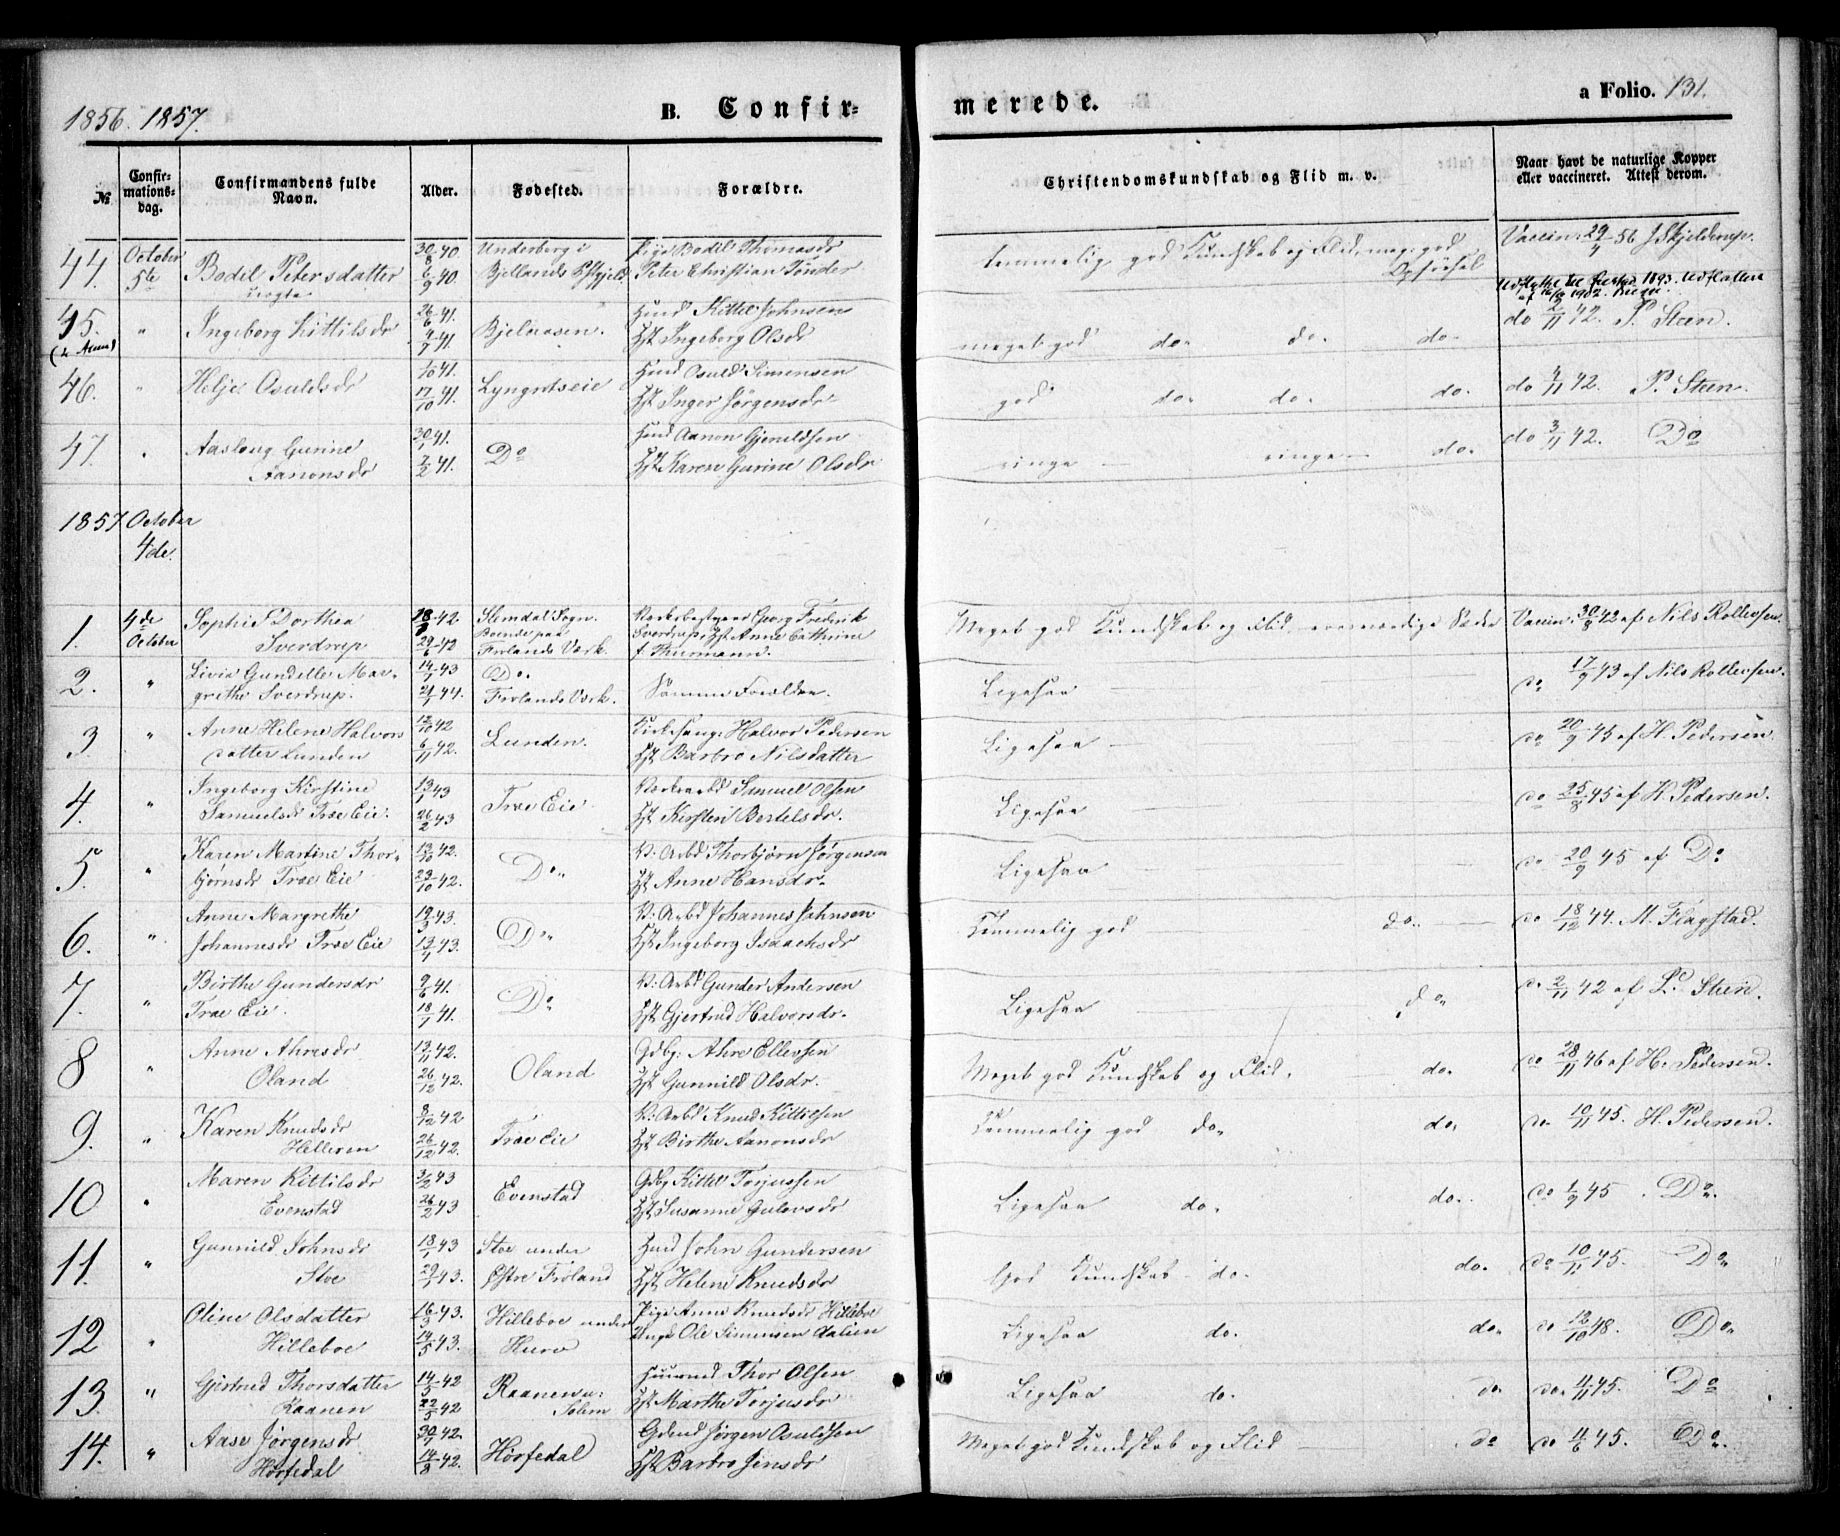 1856. 1857.
B. Confir-
merede.
a Folio. 131.
№
Confir-
mations-
dag.
Confirmandens fulde
Navn.
Alder.
Fødested.
Forældre.
Christendomskundskab og Flid m. v.
Naar havt de naturlige Kopper
eller vaccineret. Attest derom.
44. October 5te Bodil Petersdatter 30/8 40. 6/9 40. Underberg i Bjellands Pige Bodil Thomasdr Peter Christian Tønder temmelig god Kundskab og Flid, meg. god Opførsel Vaccin: 29/4 56 J Skjelderup.
45. " Ingeborg Kittilsdr 26/6 41. 4/7 41 Bjelnæsen. Huusd Kittil Johnsen Hst Ingeborg Olsdr meget god do. do. do. do 2/11 42. P. Steen.
46. " Helje Osuldsdr 1/10 41. 17/10 41. Lyngrotseie Huusd Osuld Simensen Hst Inger Jørgensdr god do. do. do. do 4/11 42. P. Steen.
47. " Aaslaug Gurine Aanonsdr 30/1 41. 7/2 41. Do Huusd Aanon Gjeruldsen Hst Karen Gurine Olsdr ringe ringe do. do 3/11 42. Do
1857 October
4de.
1. 4de October Sophie Dorthea Sverdrup 18/ 42. 29/6 42 Slemdal Sogn. Boende paa Frolands Værk. Værksbestyrer Georg Frederik Sverdrup, Hst Anne Cathrine f. Thurmann. Meget god Kundskab og Flid, Sæder Vaccin: 30/8 42 af Nils Rollevsen.
2. " Livia Gundelle Margrethe Sverdrup. 14/ 43 21/1 44. Do. Frolands Værk. Samme Forældre. Ligesaa do 17/9 43 af Nils Rollevsen.
3 " Anne Helene Halvorsdatter Lunden 12/10 42 6/11 42. Lunden. Kirkesang: Halvor Pedersen Hst Barbro Nilsdatter Ligesaa do 20/9 45 af H. Pedersen.
4. " Ingeborg Kirstine Samuelsdr Træ Eie. 13/1 43 26/2 43 Træ Eie. Værksarbd Samuel Olsen Hst Kirsten Bertelsdr. Ligesaa do 25/8 45 af H. Pedersen.
5. " Karen Martine Thorbjørnsdr Træ Eie 12/10 42. 23/10 42. Do. V: Arbd Thorbjørn Jørgensen Hst Anne Hansdr. Ligesaa do 20/9 45 af Do
6. " Anne Margrethe Johannesdr Træ Eie 19/3 43. 13/ 43. Do V: Arbd Johannes Johnsen Hst Ingeborg Isaachsdr Temmelig god do. do 18/12 44. M. Flagstad.
7. " Birthe Gundersdr Træ Eie. 9/6 41. 18/ 41. Do V: Arbd Gunder Andersen Hst Gjertrud Halvorsdr. Ligesaa do do 2/11 42 af P. Steen.
8 " Anne Ahresdr Oland 12/11 42. 26/12 42. Oland Gdbg: Ahre Ellevsen Hst Gunnild Olsdr. Meget god Kundskab og Flid. do. do 28/11 46 af H. Pedersen.
9. " Karen Knudsdr Helleren 8/12 42 26/12 42. Træ Eie V: Arbd Knud Kittilsen Hst Birthe Aanonsdr Temmelig god do. do. do 10/11 45. H. Pedersen.
10 " Maren Kittilsdr Evenstad 3/2 43 26/2 43 Evenstad Gdbg Kittel Torjussen Hst Susanne Gulovsdr Ligesaa do. do. do 1/9 45. Do.
11. " Gunnild Johnsdr Stoe 18/1 43 29/1 43. Stoe under Østre Froland Huusd John Gundersen Hst Helene Knudsdr God Kundskab do. do. do 10/11 45. Do
12 " Oline Olsdatter Hilleboe 16/3 43. 14/5 43. Hilleboe under Hurv Pige Anne Knudsdr Hilleboe Ungk Ole Simensen Dalen Ligesaa do. do. do 12/10 48. Do
13. " Gjertrud Thorsdatter Raanen 14/5 42 22/5 42 Raanen u: Solem Huusmd. Thor Olsen Hst Marthe Torjusdr Ligesaa do. do do 4/11 45. Do
14. " Aase Jørgensdr Hørfedal 30/ 42. 14/8 42. Hørfedal Gdmd Jørgen Osuldsen Hst Barbro Jensdr Meget god Kundskab og Flid do do 4/6 45. Do.